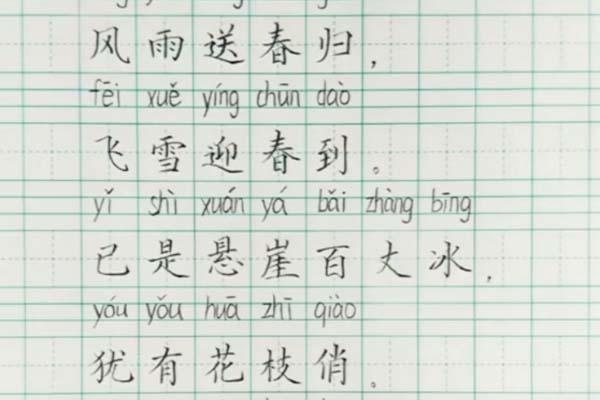 风雨送春归，
fēi xuě yíng chūn dào
飞雪迎春到。
yǐ shì xuán yá bǎi zhàng bīng
已是悬崖百丈冰，
yóu yǒu huā zhī qiào
犹有花枝俏。